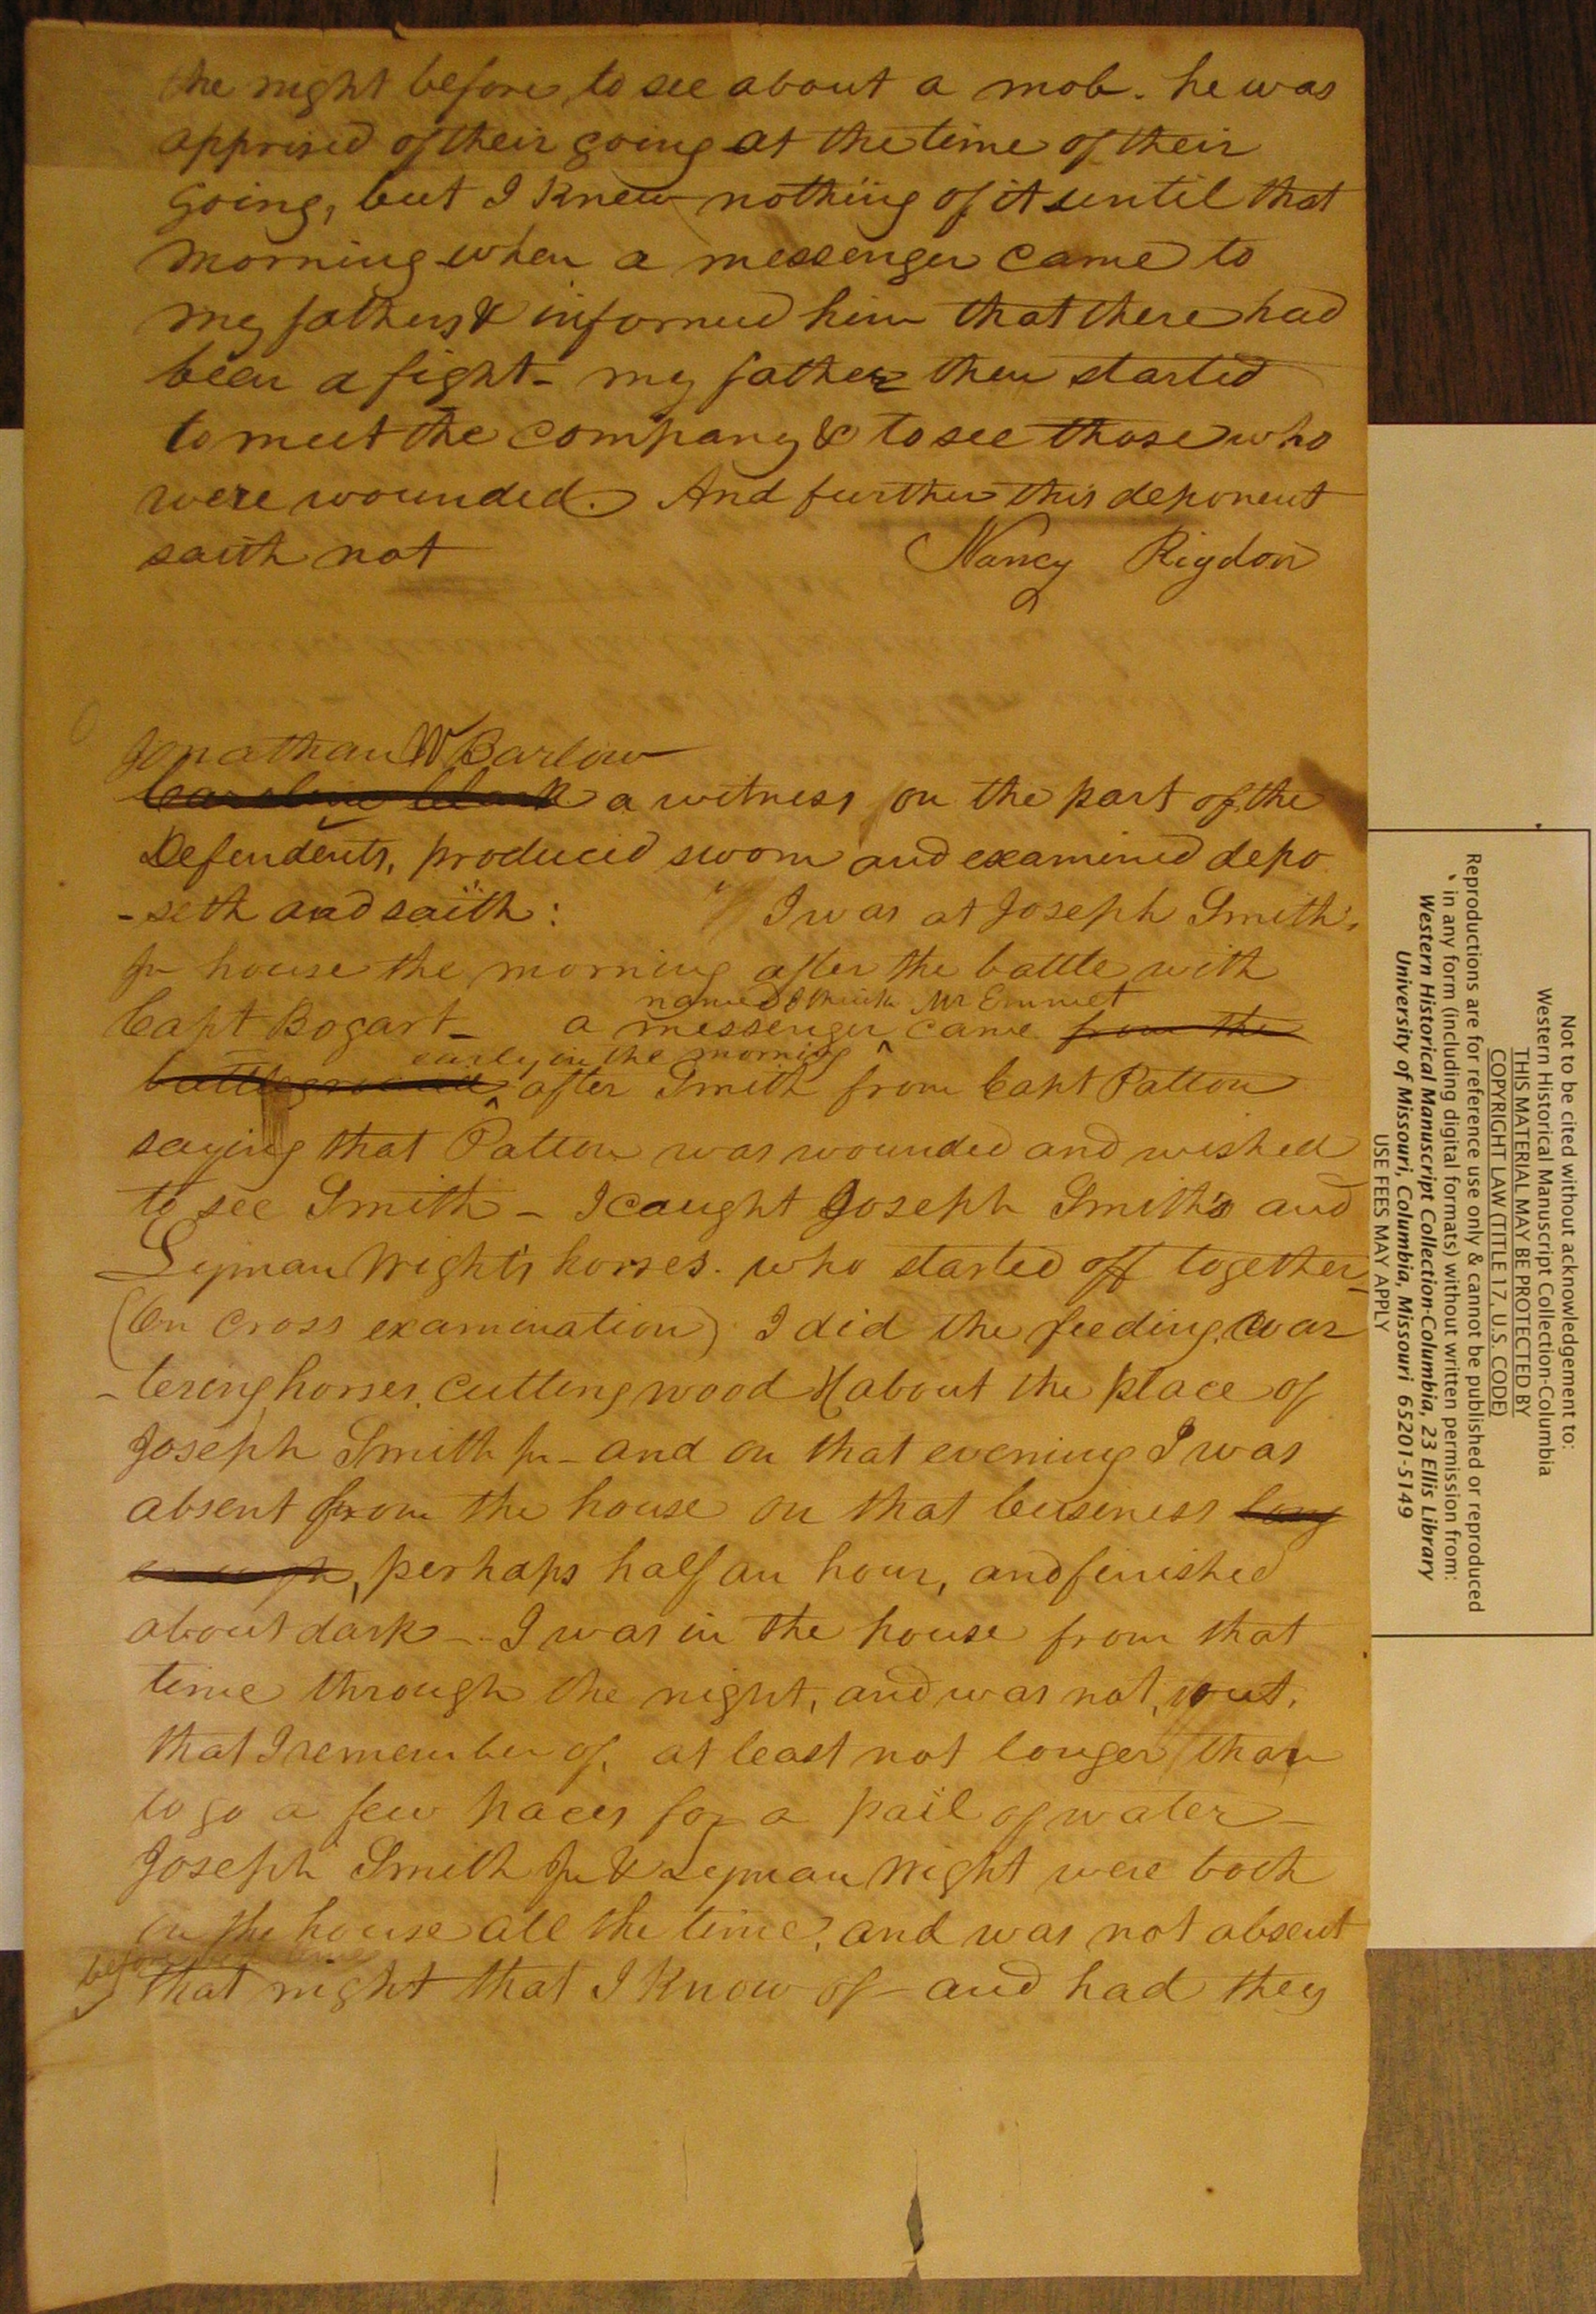 the night before, to see about a mob. he was
apprised of their going at the time of their
going, but I knew nothing of it until that
morning when a messenger came to
my fathers & informed him that there had
been a fight - my father then started
to meet the company & to see those who
were wounded. And further this deponent
saith not Nancy Rigdon
Jonathan W Barlow
Caroline Clark a witness on the part of the
Defendents, produced sworn and examined depo
-seth and saith: " I was at Joseph Smith's
Jr house the morning after the battle with
named I think Mr Emmet
Capt Bogart - a messenger ^ came from the
early in the morning
battleground ^ after Smith from Capt Patton
saying that Patton was wounded and wished
to see Smith - I caught Joseph Smith's and
Lyman Wight's horses. who started off together -
(On cross examination) I did the feeding, wa
-tering horses, cutting wood & about the place of
Joseph Smith Jr - and on that evening I was
absent from the house on that buseness long
enough, perhaps half an hour, and finished
about dark - I was in the house from that
time through the night, and was not, out,
that I remember of, at least not longer than
to go a few paces for a pail of water -
Joseph Smith Jr & Lyman Wight were both
in the house all the time, and was not absent
before bed time
that night that I know of - and had they
Not to be cited without acknowledgement to:
Western Historical Manuscript Collection-Columbia
THIS MATERIAL MAY BE PROTECTED BY
COPYRIGHT LAW (TITLE 17, U.S. CODE)
Reproductions are for reference use only & cannot be published or reproduced
in any form (including digital formats) without written permission from:
Western Historical Manuscript Collection-Columbia, 23 Ellis Library
University of Missouri, Columbia, Missouri 65201-5149
USE FEES MAY APPLY